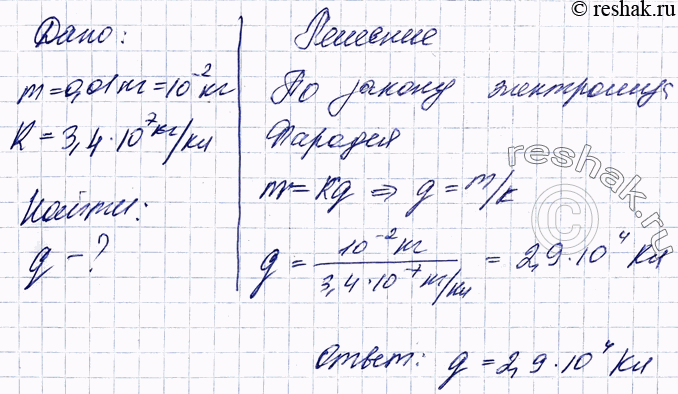 © reshak.ru
Дано:
m=0,01кг=10⁻²кг
K=3,4·10⁷кг/кл
Найти:
q-?
Решение
По закону электролиза
Фарадея
m=Kq ⇒ q=m/k
q = 10⁻²кг / 3,4·10⁻⁷кг/кл = 2,9·10⁴ Кл
Ответ: q=2,9·10⁴ Кл
reshak.ru